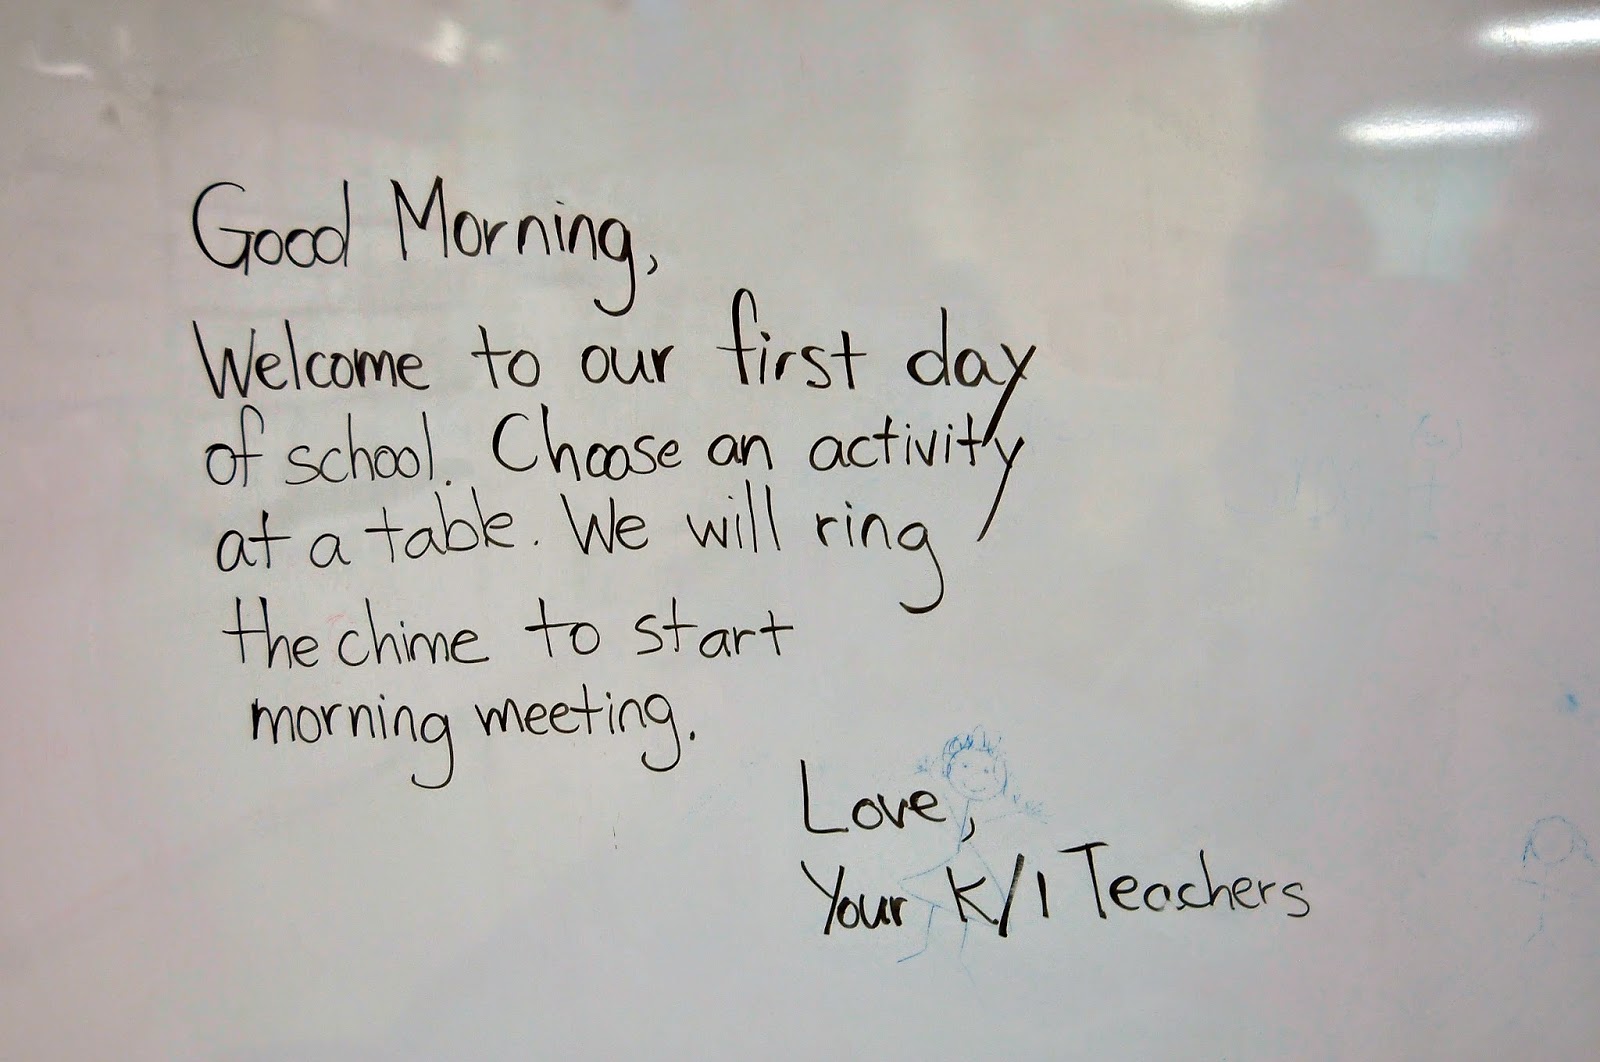 Good Morning,
Welcome to our first day
of school. Choose an activity
at a table. We will ring
the chime to start
morning meeting.
Love,
Your K/1 Teachers